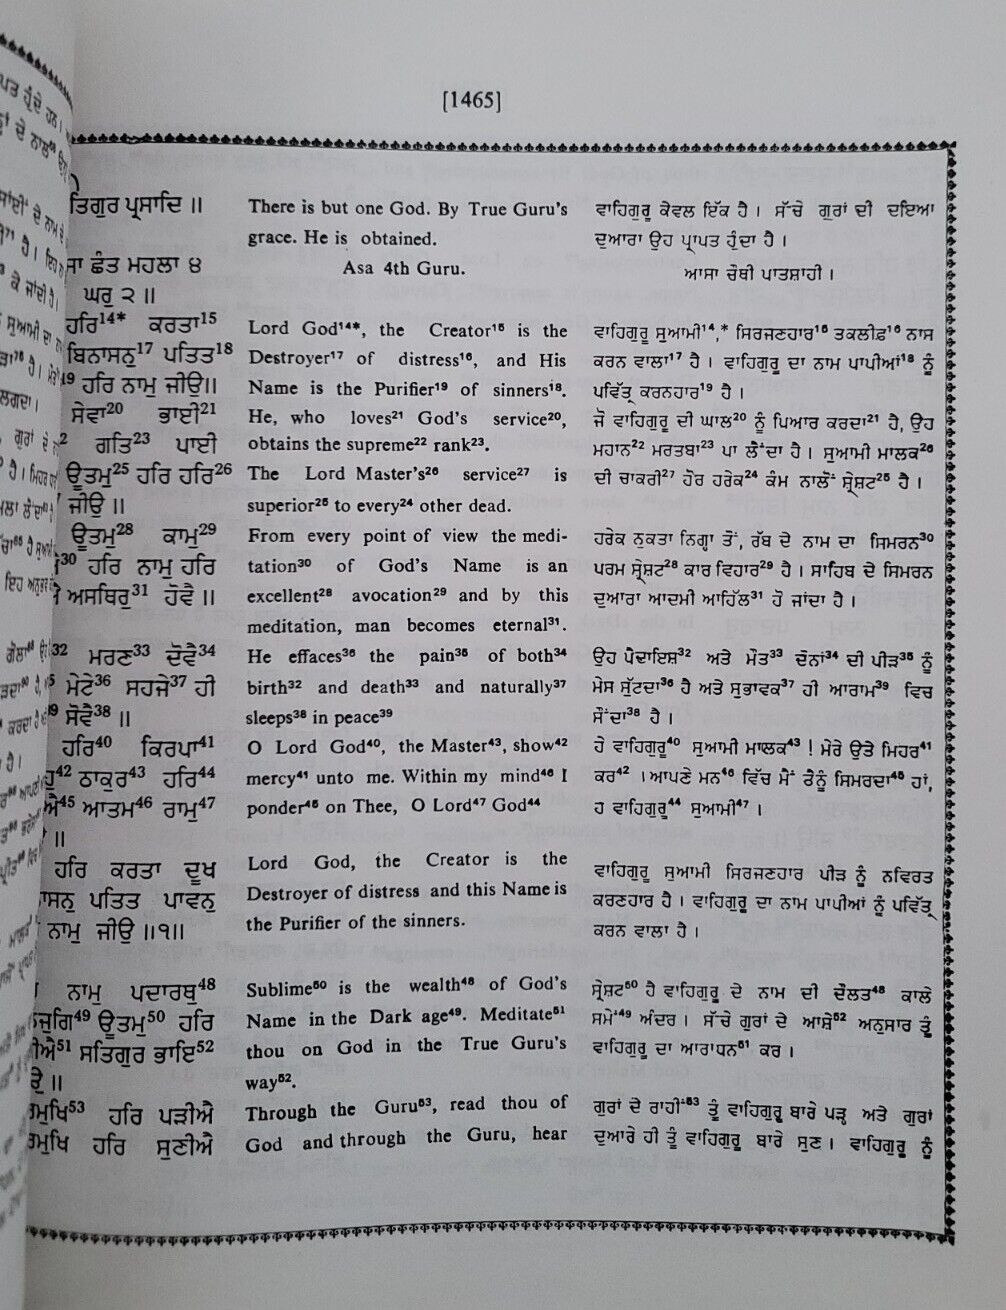 [1465]
ਤਿਗੁਰ ਪ੍ਰਸਾਦਿ ॥
ਸਾ ਛੰਤ ਮਹਲਾ ੪
ਘਰੁ ੨ ॥
ਹਰਿ¹⁴* ਕਰਤਾ¹⁵
ਬਿਨਾਸਨੁ¹⁷ ਪਤਿਤ¹⁸
¹⁹ ਹਰਿ ਨਾਮੁ ਜੀਉ॥
ਸੇਵਾ²⁰ ਭਾਈ²¹
² ਗਤਿ²³ ਪਾਈ
ਊਤਮੁ²⁵ ਹਰਿ ਹਰਿ²⁶
ਜੀਉ ॥
ਊਤਮੁ²⁸ ਕਾਮੁ²⁹
³⁰ ਹਰਿ ਨਾਮੁ ਹਰਿ
ਐ ਅਸਥਿਰੁ³¹ ਹੋਵੈ ॥
³² ਮਰਣ³³ ਦੋਵੈ³⁴
⁵ ਮੇਟੇ³⁶ ਸਹਜੇ³⁷ ਹੀ
³⁹ ਸੋਵੈ³⁸ ॥
ਹਰਿ⁴⁰ ਕਿਰਪਾ⁴¹
ਹੁ⁴² ਠਾਕੁਰ⁴³ ਹਰਿ⁴⁴
ਐ⁴⁵ ਆਤਮ⁴⁶ ਰਾਮੁ⁴⁷
॥
ਹਰਿ ਕਰਤਾ ਦੂਖ
ਾਸਨੁ ਪਤਿਤ ਪਾਵਨੁ
ਨਾਮੁ ਜੀਉ ॥੧॥
ਨਾਮੁ ਪਦਾਰਥੁ⁴⁸
ਲਜੁਗਿ⁴⁹ ਊਤਮੁ⁵⁰ ਹਰਿ
ੀਐ⁵¹ ਸਤਿਗੁਰ ਭਾਇ⁵²
ਉ ॥
ਰਮੁਖਿ⁵³ ਹਰਿ ਪੜੀਐ
ਰਮੁਖਿ ਹਰਿ ਸੁਣੀਐ
There is but one God. By True Guru's
grace. He is obtained.
Asa 4th Guru.
Lord God¹⁴*, the Creator¹⁵ is the
Destroyer¹⁷ of distress¹⁶, and His
Name is the Purifier¹⁹ of sinners¹⁸.
He, who loves²¹ God's service²⁰,
obtains the supreme²² rank²³.
The Lord Master's²⁶ service²⁷ is
superior²⁵ to every²⁴ other dead.
From every point of view the medi-
tation³⁰ of God's Name is an
excellent²⁸ avocation²⁹ and by this
meditation, man becomes eternal³¹.
He effaces³⁶ the pain³⁵ of both³⁴
birth³² and death³³ and naturally³⁷
sleeps³⁸ in peace³⁹
O Lord God⁴⁰, the Master⁴³, show⁴²
mercy⁴¹ unto me. Within my mind⁴⁶ I
ponder⁴⁵ on Thee, O Lord⁴⁷ God⁴⁴
Lord God, the Creator is the
Destroyer of distress and this Name is
the Purifier of the sinners.
Sublime⁵⁰ is the wealth⁴⁸ of God's
Name in the Dark age⁴⁹. Meditate⁵¹
thou on God in the True Guru's
way⁵².
Through the Guru⁵³, read thou of
God and through the Guru, hear
ਵਾਹਿਗੁਰੂ ਕੇਵਲ ਇੱਕ ਹੈ । ਸੱਚੇ ਗੁਰਾਂ ਦੀ ਦਇਆ
ਦੁਆਰਾ ਉਹ ਪ੍ਰਾਪਤ ਹੁੰਦਾ ਹੈ ।
ਆਸਾ ਚੌਥੀ ਪਾਤਸ਼ਾਹੀ ।
ਵਾਹਿਗੁਰੂ ਸੁਆਮੀ¹⁴,* ਸਿਰਜਣਹਾਰ¹⁵ ਤਕਲੀਫ਼¹⁶ ਨਾਸ
ਕਰਨ ਵਾਲਾ¹⁷ ਹੈ । ਵਾਹਿਗੁਰੂ ਦਾ ਨਾਮ ਪਾਪੀਆਂ¹⁸ ਨੂੰ
ਪਵਿੱਤ੍ਰ ਕਰਨਹਾਰ¹⁹ ਹੈ ।
ਜੋ ਵਾਹਿਗੁਰੂ ਦੀ ਘਾਲ²⁰ ਨੂੰ ਪਿਆਰ ਕਰਦਾ²¹ ਹੈ, ਉਹ
ਮਹਾਨ²² ਮਰਤਬਾ²³ ਪਾ ਲੈਂਦਾ ਹੈ । ਸੁਆਮੀ ਮਾਲਕ²⁶
ਦੀ ਚਾਕਰੀ²⁷ ਹੋਰ ਹਰੇਕ²⁴ ਕੰਮ ਨਾਲੋਂ ਸ੍ਰੇਸ਼ਟ²⁵ ਹੈ ।
ਹਰੇਕ ਨੁਕਤਾ ਨਿਗ੍ਹਾ ਤੋਂ, ਰੱਬ ਦੇ ਨਾਮ ਦਾ ਸਿਮਰਨ³⁰
ਪਰਮ ਸ੍ਰੇਸ਼ਟ²⁸ ਕਾਰ ਵਿਹਾਰ²⁹ ਹੈ । ਸਾਹਿਬ ਦੇ ਸਿਮਰਨ
ਦੁਆਰਾ ਆਦਮੀ ਆਹਿੱਲ³¹ ਹੋ ਜਾਂਦਾ ਹੈ ।
ਉਹ ਪੈਦਾਇਸ਼³² ਅਤੇ ਮੌਤ³³ ਦੋਨਾਂ³⁴ ਦੀ ਪੀੜ³⁵ ਨੂੰ
ਮੇਸ ਸੁੱਟਦਾ³⁶ ਹੈ ਅਤੇ ਸੁਭਾਵਕ³⁷ ਹੀ ਆਰਾਮ³⁹ ਵਿਚ
ਸੌਂਦਾ³⁸ ਹੈ ।
ਹੇ ਵਾਹਿਗੁਰੂ⁴⁰ ਸੁਆਮੀ ਮਾਲਕ⁴³ ! ਮੇਰੇ ਉਤੇ ਮਿਹਰ⁴¹
ਕਰ⁴² । ਆਪਣੇ ਮਨ⁴⁶ ਵਿੱਚ ਮੈਂ ਤੈਨੂੰ ਸਿਮਰਦਾ⁴⁵ ਹਾਂ,
ਹ ਵਾਹਿਗੁਰੂ⁴⁴ ਸੁਆਮੀ⁴⁷ ।
ਵਾਹਿਗੁਰੂ ਸੁਆਮੀ ਸਿਰਜਣਹਾਰ ਪੀੜ ਨੂੰ ਨਵਿਰਤ
ਕਰਣਹਾਰ ਹੈ । ਵਾਹਿਗੁਰੂ ਦਾ ਨਾਮ ਪਾਪੀਆਂ ਨੂੰ ਪਵਿੱਤ੍ਰ
ਕਰਨ ਵਾਲਾ ਹੈ ।
ਸ੍ਰੇਸ਼ਟ⁵⁰ ਹੈ ਵਾਹਿਗੁਰੂ ਦੇ ਨਾਮ ਦੀ ਦੌਲਤ⁴⁸ ਕਾਲੇ
ਸਮੇਂ⁴⁹ ਅੰਦਰ । ਸੱਚੇ ਗੁਰਾਂ ਦੇ ਆਸ਼ੇ⁵² ਅਨੁਸਾਰ ਤੂੰ
ਵਾਹਿਗੁਰੂ ਦਾ ਆਰਾਧਨ⁵¹ ਕਰ ।
ਗੁਰਾਂ ਦੇ ਰਾਹੀਂ⁵³ ਤੂੰ ਵਾਹਿਗੁਰੂ ਬਾਰੇ ਪੜ੍ਹ ਅਤੇ ਗੁਰਾਂ
ਦੁਆਰੇ ਹੀ ਤੂੰ ਵਾਹਿਗੁਰੂ ਬਾਰੇ ਸੁਣ । ਵਾਹਿਗੁਰੂ ਨੂੰ